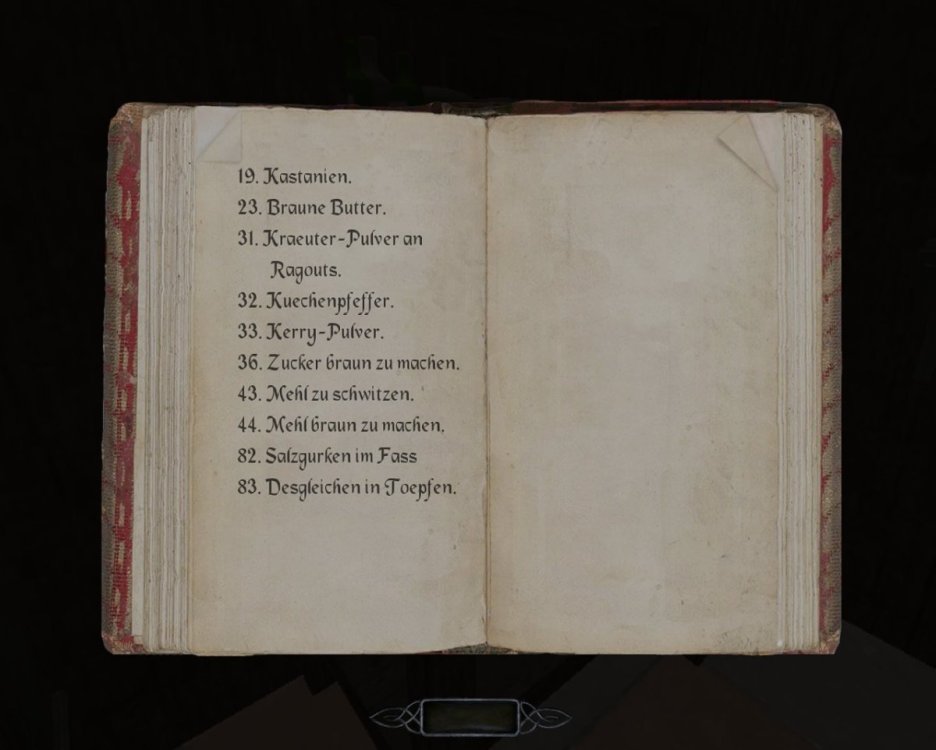 19. Kastanien.
23. Braune Butter.
31. Kraeuter-Pulver an
Ragouts.
32. Kuechenpfeffer.
33. Kerry-Pulver.
36. Zucker braun zu machen.
43. Mehl zu schwitzen.
44. Mehl braun zu machen.
82. Salzgurken im Fass
83. Desgleichen in Toepfen.